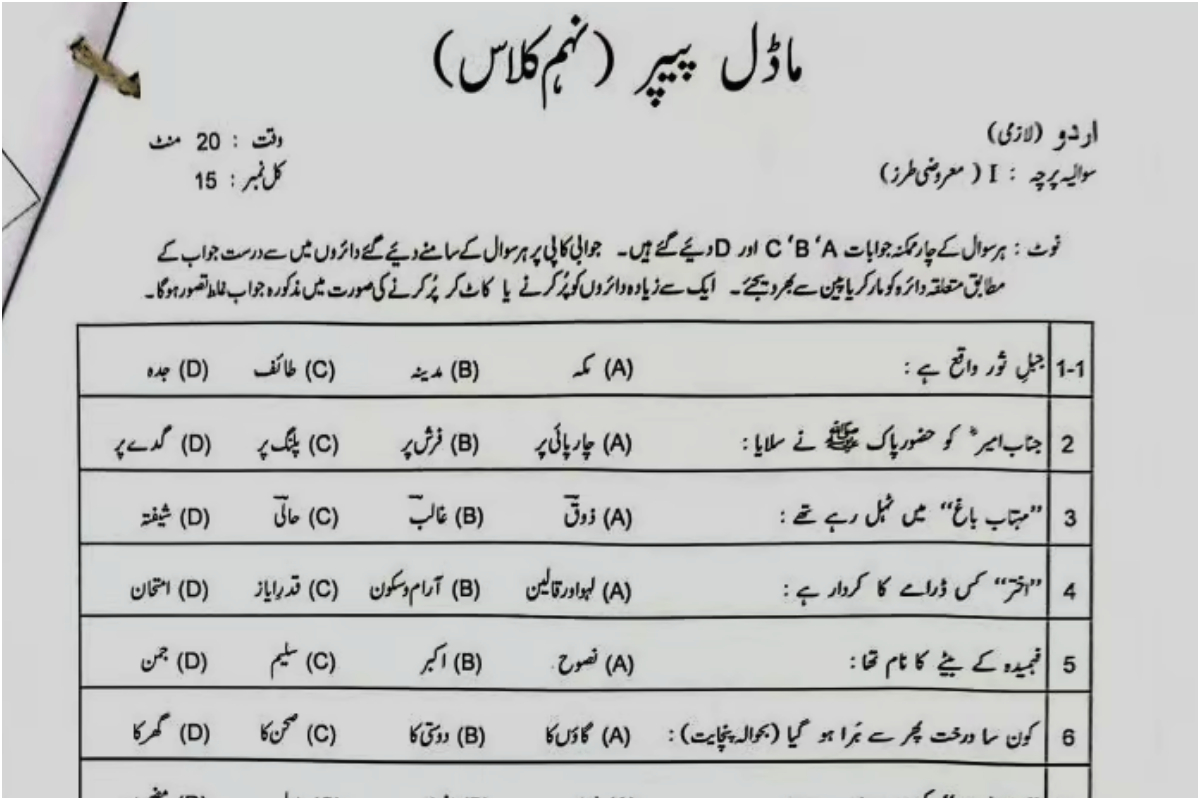 ماڈل پیپر (نہم کلاس)
اردو (لازمی) وقت : 20 منٹ
سوالیہ پرچہ : I ( معروضی طرز) کل نمبر : 15
نوٹ : ہر سوال کے چار ممکنہ جوابات A ‘B ‘C اور D دیئے گئے ہیں۔ جوابی کاپی پر ہر سوال کے سامنے دیئے گئے دائروں میں سے درست جواب کے
مطابق متعلقہ دائرہ کو مارکر یا پین سے بھر دیجئے۔ ایک سے زیادہ دائروں کو پُر کرنے یا کاٹ کر پُر کرنے کی صورت میں مذکورہ جواب غلط تصور ہوگا۔
1-1 جبلِ ثور واقع ہے : (A) مکہ (B) مدینہ (C) طائف (D) جدہ
2 جناب امیرؓ کو حضور پاک ﷺ نے سلایا : (A) چارپائی پر (B) فرش پر (C) پلنگ پر (D) گدے پر
3 “مہتاب باغ” میں ٹہل رہے تھے : (A) ذوق (B) غالب (C) حالی (D) شیفتہ
4 “اختر” کس ڈرامے کا کردار ہے : (A) لہو اور قالین (B) آرام و سکون (C) قدرِ ایاز (D) امتحان
5 فہمیدہ کے بیٹے کا نام تھا : (A) نصوح (B) اکبر (C) سلیم (D) جمن
6 کون سا درخت پھر سے ہَرا ہو گیا (بحوالہ پنچایت) : (A) گاؤں کا (B) دوستی کا (C) صحن کا (D) گھر کا